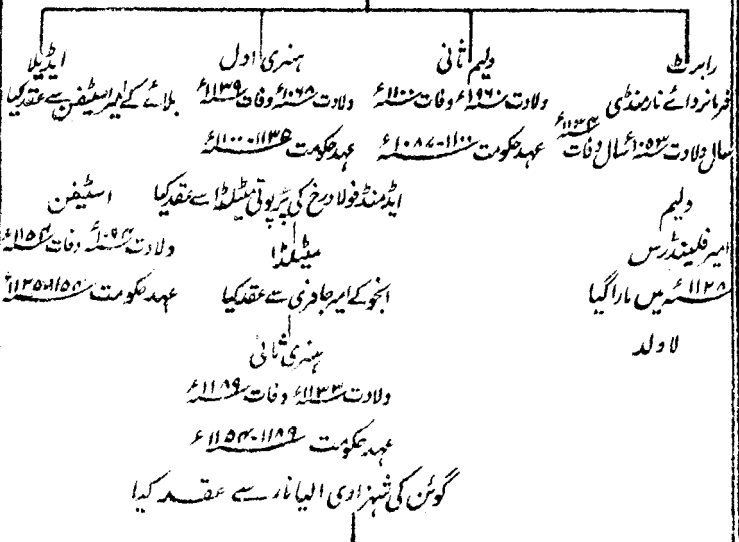 رابرٹ
فرمانروائے نارمنڈی
سالِ ولادت ۱۰۵۳ء سال وفات ۱۱۳۴ء
ولیم
امیر فلینڈرس
۱۱۲۸ء میں مارا گیا
لا ولد
ولیم ثانی
ولادت ۱۹۶۰ء وفات ۱۱۰۰ء
عہد حکومت ۱۱۰۰-۱۰۸۷ء
ہنری اول
ولادت ۱۰۶۸ء وفات ۱۱۳۹ء
عہد حکومت ۱۱۳۵-۱۱۰۰ء
ایڈمنڈ فولاد رخ کی پرپوتی میٹلڈا سے عقد کیا
میٹلڈا
انجو کے امیر جافری سے عقد کیا
ہنری ثانی
ولادت ۱۱۳۳ء وفات ۱۱۸۹ء
عہد حکومت ۱۱۸۹-۱۱۵۴ء
گوئن کی شہزادی الیانار سے عقد کیا
ایڈیلا
بلائے کے امیر اسٹیفن سے عقد کیا
اسٹیفن
ولادت ۱۰۹۴ء وفات ۱۱۵۴ء
عہد حکومت ۱۱۳۵-۱۱۵۴ء